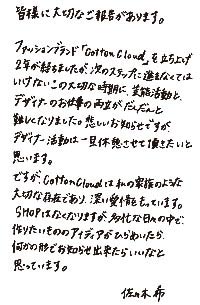 皆様に大切なご報告があります。
ファッションブランド「Cotton Cloud」を立ち上げ
2年が経ちましたが、次のステップに進まなくては
いけないこの大切な時期に、芸能活動と、
デザイナーのお仕事の両立がだんだんと
難しくなりました。悲しいお知らせですが、
デザイナー活動は一旦休憩させて頂きたいと
思います。
ですが、Cotton Cloudは私の家族のような
大切な存在であり、深い愛情をもっています。
SHOPはなくなりますが、多忙な日々の中で、
作りたいもののアイディアがひらめいたら、
何かの形でお知らせ出来たらいいなと
思っています。
佐々木 希